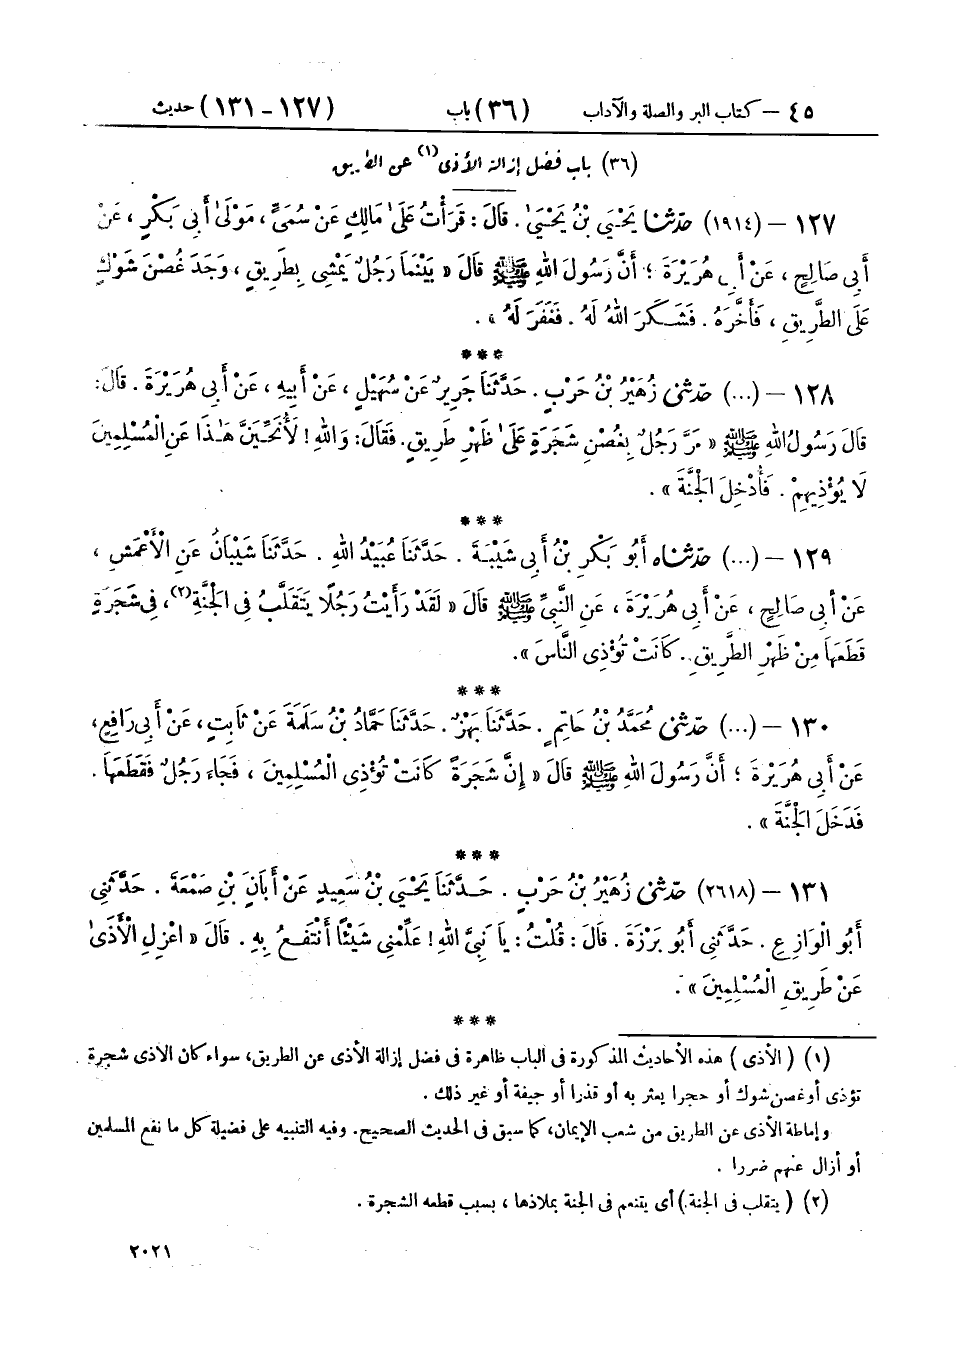 ٤٥ – كتاب البر والصلة والآداب (٣٦) باب (١٢٧ – ١٣١) حديث
(٣٦) باب فضل إزالة الأذى(١) عن الطريق
١٢٧ – (١٩١٤) حَدَّثَنَا يَحْيَىٰ بْنُ يَحْيَىٰ . قَالَ : قَرَأْتُ عَلَىٰ مَالِكٍ عَنْ سُمَيٍّ ، مَوْلَىٰ أَبِى بَكْرٍ ، عَنْ
أَبِى صَالِحٍ ، عَنْ أَبِى هُرَيْرَةَ ؛ أَنَّ رَسُولَ اللهِ ﷺ قَالَ « بَيْنَمَا رَجُلٌ يَمْشِى بِطَرِيقٍ ، وَجَدَ غُصْنَ شَوْكٍ
عَلَى الطَّرِيقِ ، فَأَخَّرَهُ . فَشَكَرَ اللهُ لَهُ . فَغَفَرَ لَهُ » .
***
١٢٨ – (...) حَدَّثَنِى زُهَيْرُ بْنُ حَرْبٍ . حَدَّثَنَا جَرِيرٌ عَنْ سُهَيْلٍ ، عَنْ أَبِيهِ ، عَنْ أَبِى هُرَيْرَةَ . قَالَ :
قَالَ رَسُولُ اللهِ ﷺ « مَرَّ رَجُلٌ بِغُصْنِ شَجَرَةٍ عَلَىٰ ظَهْرِ طَرِيقٍ . فَقَالَ : وَاللهِ ! لَأُنَحِّيَنَّ هَٰذَا عَنِ الْمُسْلِمِينَ
لَا يُؤْذِيهِمْ . فَأُدْخِلَ الْجَنَّةَ » .
***
١٢٩ – (...) حَدَّثَنَاه أَبُو بَكْرِ بْنُ أَبِى شَيْبَةَ . حَدَّثَنَا عُبَيْدُ اللهِ . حَدَّثَنَا شَيْبَانُ عَنِ الْأَعْمَشِ ،
عَنْ أَبِى صَالِحٍ ، عَنْ أَبِى هُرَيْرَةَ ، عَنِ النَّبِيِّ ﷺ قَالَ « لَقَدْ رَأَيْتُ رَجُلًا يَتَقَلَّبُ فِى الْجَنَّةِ(٢) ، فِى شَجَرَةٍ
قَطَعَهَا مِنْ ظَهْرِ الطَّرِيقِ . كَانَتْ تُؤْذِى النَّاسَ » .
***
١٣٠ – (...) حَدَّثَنِى مُحَمَّدُ بْنُ حَاتِمٍ . حَدَّثَنَا بَهْزٌ . حَدَّثَنَا حَمَّادُ بْنُ سَلَمَةَ عَنْ ثَابِتٍ ، عَنْ أَبِى رَافِعٍ ،
عَنْ أَبِى هُرَيْرَةَ ؛ أَنَّ رَسُولَ اللهِ ﷺ قَالَ « إِنَّ شَجَرَةً كَانَتْ تُؤْذِى الْمُسْلِمِينَ ، فَجَاءَ رَجُلٌ فَقَطَعَهَا .
فَدَخَلَ الْجَنَّةَ » .
***
١٣١ – (٢٦١٨) حَدَّثَنِى زُهَيْرُ بْنُ حَرْبٍ . حَدَّثَنَا يَحْيَىٰ بْنُ سَعِيدٍ عَنْ أَبَانَ بْنِ صَمْعَةَ . حَدَّثَنِى
أَبُو الْوَازِعِ . حَدَّثَنِى أَبُو بَرْزَةَ . قَالَ : قُلْتُ : يَا نَبِيَّ اللهِ ! عَلِّمْنِى شَيْئًا أَنْتَفِعُ بِهِ . قَالَ « اعْزِلِ الْأَذَىٰ
عَنْ طَرِيقِ الْمُسْلِمِينَ » .
***
(١) ( الأذى ) هذه الأحاديث المذكورة فى الباب ظاهرة فى فضل إزالة الأذى عن الطريق، سواء كان الأذى شجرة
تؤذى أو غصن شوك أو حجرا يعثر به أو قذرا أو جيفة أو غير ذلك .
وإماطة الأذى عن الطريق من شعب الإيمان، كما سبق فى الحديث الصحيح. وفيه التنبيه على فضيلة كل ما نفع المسلمين
أو أزال عنهم ضررا .
(٢) ( يتقلب فى الجنة ) أى يتنعم فى الجنة بملاذها ، بسبب قطعه الشجرة .
٢٠٢١